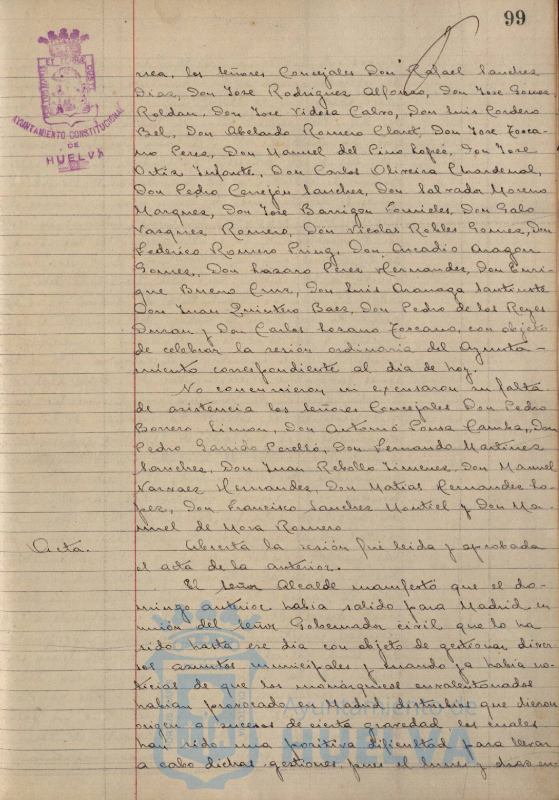 99
AYUNTAMIENTO CONSTITUCIONAL
DE
HUELVA
nea, los Señores Concejales Don Rafael Sanchez
Diaz, Don Jose Rodriguez Alfonso, Don Jose Gomez
Roldan, Don Jose Vidosa Calvo, Don Luis Cordero
Bel, Don Abelardo Romero Claret, Don Jose Tosca-
no Perez, Don Manuel del Pino Lopez, Don Jose
Ortiz Infante, Don Carlos Oliveira Chardenal,
Don Pedro Cerejon Sanchez, Don Salvador Moreno
Marquez, Don Jose Barrigon Fornieles, Don Galo
Vazquez Romero, Don Nicolas Robles Gomez, Don
Federico Romero Don Arcadio Aragon
Gomez, Don Lazaro Perez Hernandez, Don Enri
que Bueno Cruz, Don Luis
Don Juan Quintero Baez, Don Pedro de los Reyes
Duran y Don Carlos Lozano Toscano, con objeto
de celebrar la sesión ordinaria del Ayunta-
miento correspondiente al dia de hoy.
No concurrieron ni excusaron su falta
de asistencia los Señores Concejales Don Pedro
Borrero Limon, Don Antonio Pousa Camba, Don
Pedro Garrido Perelló, Don Fernando Martinez
Sanchez, Don Juan Rebollo Jimenez, Don Manuel
Narvaez Hernandez, Don Matias Hernandez Lo-
pez, Don Francisco Sanchez Montiel y Don Ma-
nuel de Mora Romero
Acta. Abierta la sesión fué leida y aprobada
el acta de la anterior.
El Señor Alcalde manifestó que el do-
mingo anterior habia salido para Madrid en
unión del Señor Gobernador civil que lo ha
sido hasta ese dia con objeto de gestionar diver
sos asuntos municipales y cuando ya habia no-
ticias de que los monárquicos envalentonados
habian provocado en Madrid disturbios que dieron
origen a sucesos de cierta gravedad los cuales
han sido una positiva dificultad para llevar
a cabo dichas gestiones, pues el lunes y dias en-
Ayuntamiento de
HUELVA